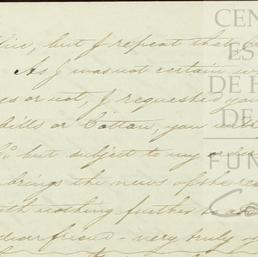 but I repeat that
As I was not certain
es or not, I requested you
bills or Cotton, you will
but subject to my
brings the news of the
nothing further
dear friend - very truly
CEN
ES
DE H
DE
FUN